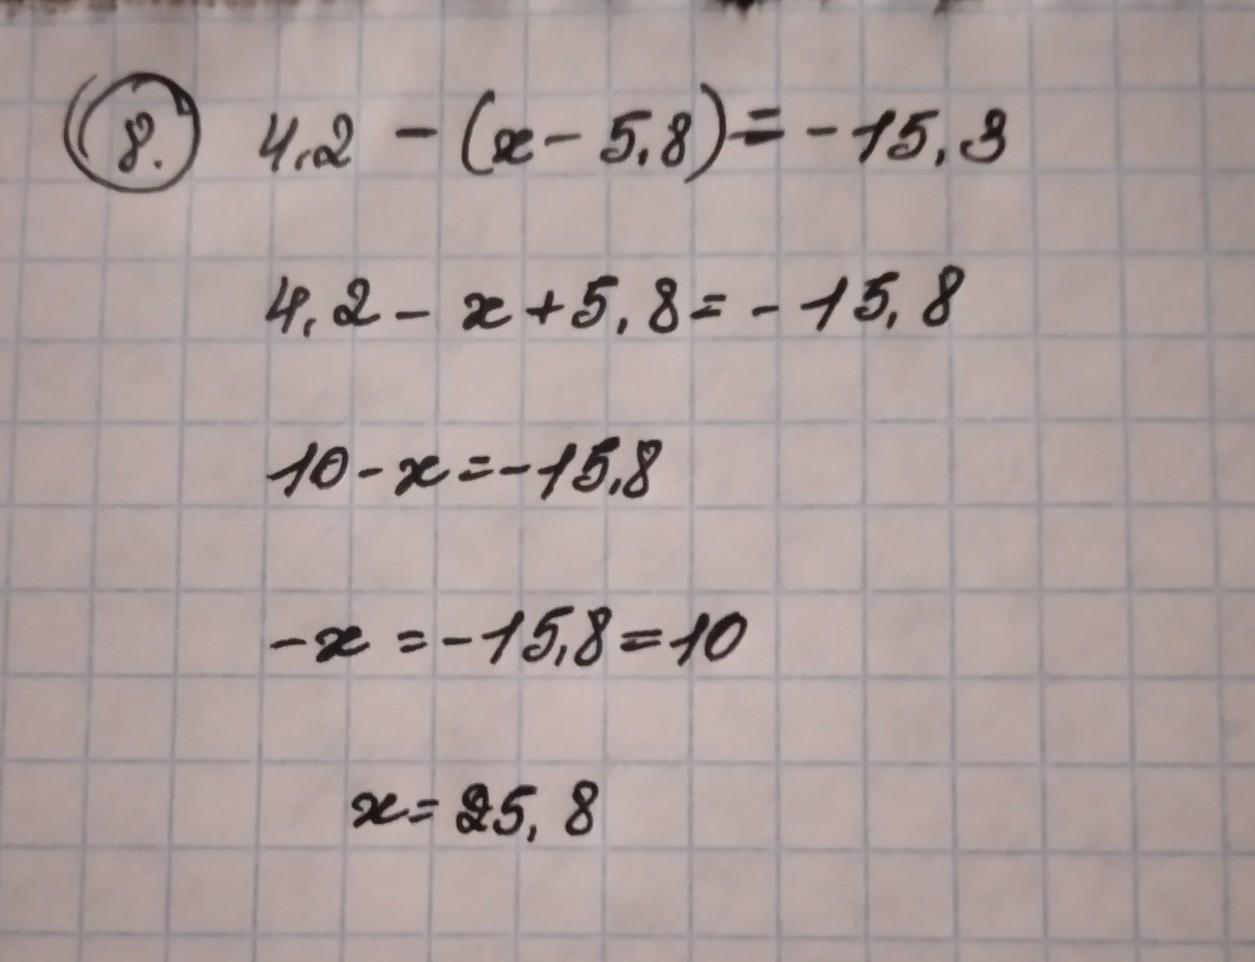 8. 4,2 - (x - 5,8) = -15,3
4,2 - x + 5,8 = -15,8
10 - x = -15,8
-x = -15,8 = 10
x = 25,8